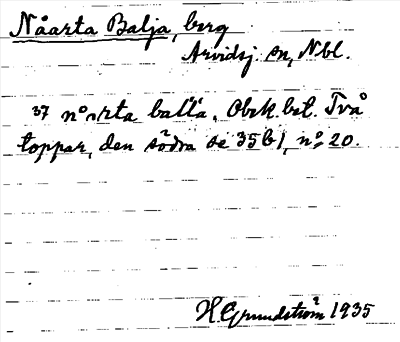 Nåarta Balja, berg
Arvidsj. sn, Nbl.
37 nₒₐrta bal'l'a. Obek. bet. Två
toppar, den södra se 35b1, nº 20.
H. Grundström 1935